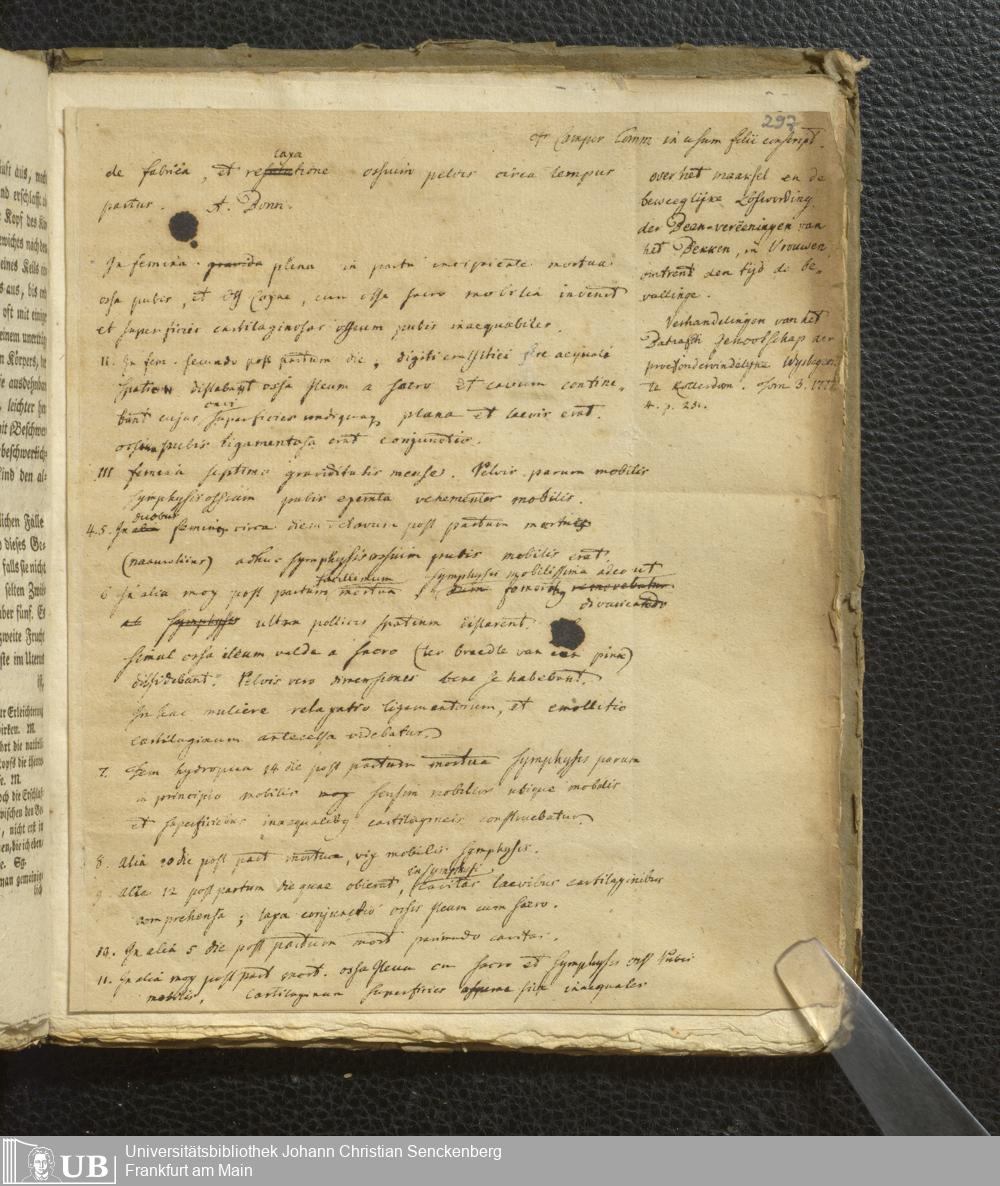 297
Camper Comm in usum filii conscript.
laxa
de fabrica, et resolutione ossium pelvis circa tempus
partus. A. Bonn.
over het maaksel en de
beweeglijke Loswording
der Been-vereeningen van
het Bekken, in Vrouwen
omtrent den tijd der be-
vallinge.
Verhandelingen van het
Bataafsch Genootschap der
proefondervindelijke Wysbegeer
te Rotterdam. 3. 177
4. p. 251.
In femina gravida plena in partu incipiente mortua
ossa pubis, et Oss Coxae, cum osse sacro mobilia invenit
et superficies cartilaginosas ossium pubis inaequabiles.
II. In fem. secundo post partum die, digiti fere
spatium distabant ossa Ileum a sacro et cavum contine-
cavi
bant cujus superficies undique plana et laevis erat.
ossium pubis ligamentosa erat conjunctio.
III femina septimo graviditatis mense. Pelvis parum mobilis
symphysis ossium pubis exemta vehementer mobilis.
duobus
4.5. In feminis circa diem octavum post partum mortuis
adhuc symphysis ossium pubis mobilis erat
facillimum symphysis mobilissima adeo ut
6 In alia mox post partum mortua femoribus removebatur
divaricando
symphysis ultra pollicis spatium distarent.
simul ossa ileum valde a sacro (ter breedte van een pink)
dissidebant. Pelvis vero dimensiones bene se habebant.
In hac muliere relaxatio ligamentorum, et emollitio
cartilaginum arcessita videbatur.
7. Fem hydropica 14 die post partum mortua symphysis parum
in principio mobilis mox sensim mobilius ubique mobilis
et superficiebus inaequalibus cartilagineis
8. Alia 20 die post part mortua, vix mobilis symphysis.
in symphysi
9. Alia 12 post partum die quae obierat, cavitas laevibus cartilaginibus
comprehensa; laxa conjunctio ossis Ileum cum sacro.
10. In alia 5 die post partum mort cavitas.
11. In alia mox post part mort. ossa Ileum cum sacro et symphysis oss Pubis
mobilis, cartilaginum superficies inaequales
UB
Universitätsbibliothek Johann Christian Senckenberg
Frankfurt am Main